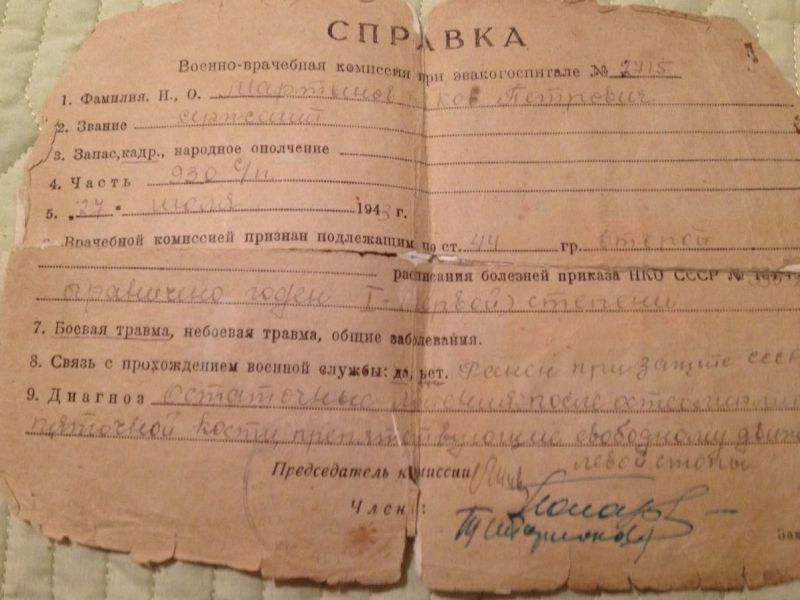 СПРАВКА
Военно-врачебная комиссия при эвакогоспитале № 2715
1. Фамилия, И., О. Мартынов Петрович
2. Звание
3. Запас, кадр., народное ополчение
4. Часть 930 с/п
5. „27“ июля 1943 г.
Врачебной комиссией признан подлежащим по ст. 44 гр. второй
расписания болезней приказа НКО СССР №
ограничено годен I-(первой) степени
7. Боевая травма, небоевая травма, общие заболевания.
8. Связь с прохождением военной службы: да, нет. Ранен при защите СССР
9. Диагноз Остаточные явления после
пяточной кости, препятствующие свободному
левой стопы
Председатель комиссии
Член: